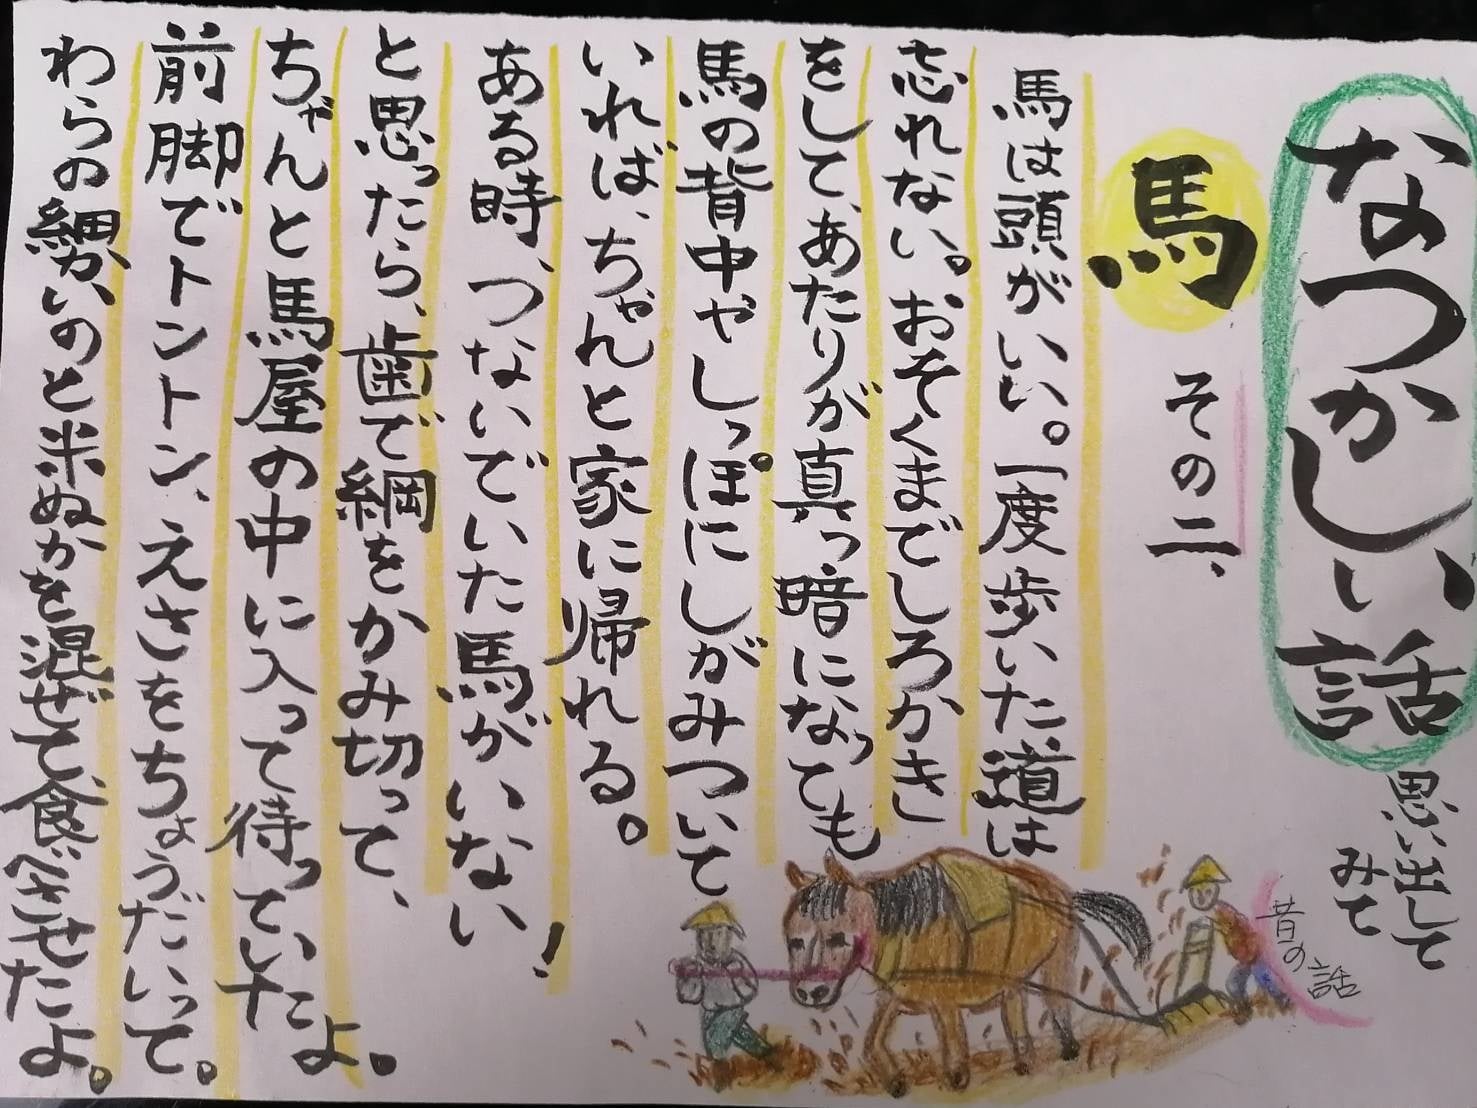 なつかしい話
思い出して
みて
昔の話
馬 その二、
馬は頭がいい。一度歩いた道は
忘れない。おそくまでしろかき
をして、あたりが真っ暗になっても
馬の背中やしっぽにしがみついて
いれば、ちゃんと家に帰れる。
ある時、つないでいた馬がいない!
と思ったら、歯で綱をかみ切って、
ちゃんと馬屋の中に入って待っていたよ。
前脚でトントン、えさをちょうだいって。
わらの細かいのと米ぬかを混ぜて食べさせたよ。